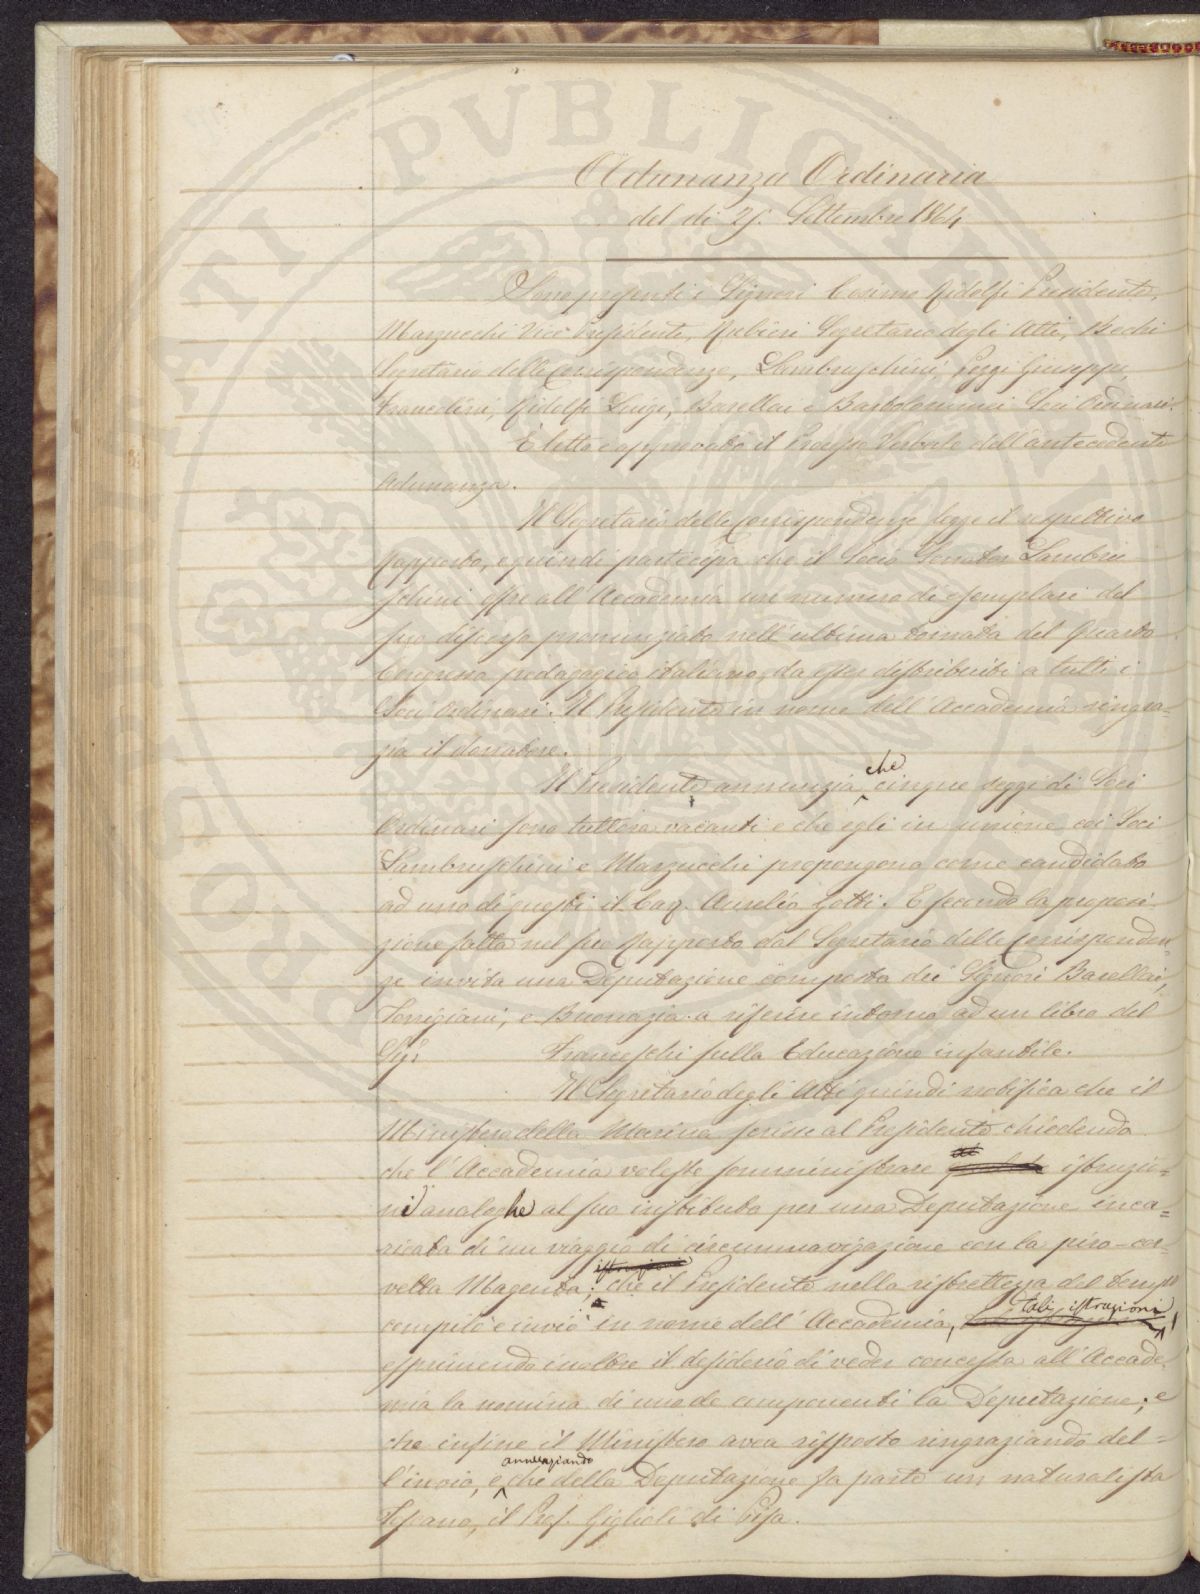 Adunanza Ordinaria
del di 25. Settembre 1864
Sono presenti i Signori Cosimo Ridolfi Presidente,
Marzucchi Vice Presidente, Rubieri Segretario degli Atti, Bechi
Segretario delle Corrispondenze, Lambruschini, Poggi Giuseppe,
Francolini, Ridolfi Luigi, Barellai e Bartolommei Soci Ordinari.
È letto e approvato il Processo Verbale dell'antecedente
Adunanza.
Il Segretario delle Corrispondenze legge il respettivo
Rapporto, e quindi partecipa che il Socio Senator Lambru
schini offre all'Accademia un numero di esemplari del
suo discorso pronunziato nell'ultima tornata del quarto
Congresso pedagogico italiano, da esser distribuiti a tutti i
Soci Ordinari. Il Presidente in nome dell'Accademia ringra=
zia il donatore.
Il Presidente annunzia che cinque seggi di Soci
Ordinari sono tuttora vacanti e che egli in unione coi Soci
Lambruschini e Marzucchi propongono come candidato
ad uno di questi il Cav. Aurelio Gotti. E secondo la proposi
zione fatta nel suo Rapporto dal Segretario delle Corrisponden=
ze invita una Deputazione composta dei Signori Barellai,
Torrigiani, e Buonazia a riferire intorno ad un libro del
Sigr. Franceschi sulla Educazione infantile.
Il Segretario degli Atti quindi notifica che il
Ministero della Marina scrisse al Presidente chiedendo
che l'Accademia volesse somministrare istruzio=
ni analoghe al suo instituto per una Deputazione inca=
ricata di un viaggio di circumnavigazione con la piro-cor=
vetta Magenta; istruzioni che il Presidente nella ristrettezza del tempo
compilò e inviò in nome dell'Accademia, tali istruzioni,
esprimendo inoltre il desiderio di veder concessa all'Accade=
mia la nomina di uno de componenti la Deputazione; e
che infine il Ministero avea risposto ringraziando del=
l'invio, e annunziando che della Deputazione fa parte un naturalista
Toscano, il Prof. Giglioli di Pisa.